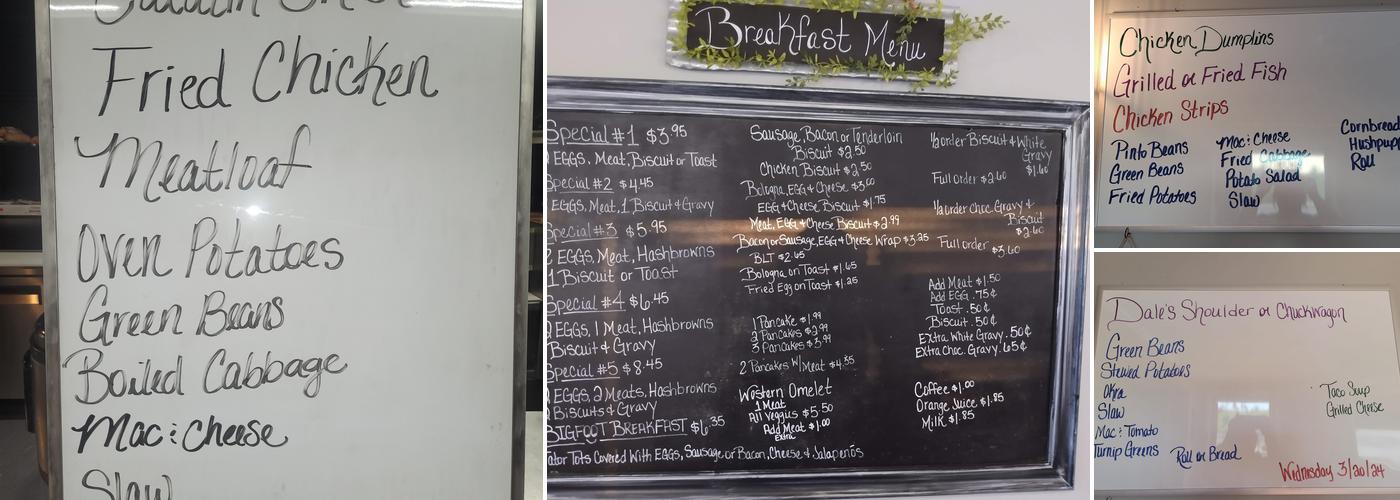 Fried Chicken
Meatloaf
Oven Potatoes
Green Beans
Boiled Cabbage
Mac & Cheese
Slaw
Breakfast Menu
Special #1 $3.95
EGGS, Meat, Biscuit or Toast
Special #2 $4.45
EGGS, Meat, 1 Biscuit & Gravy
Special #3 $5.95
2 EGGS, Meat, Hashbrowns
1 Biscuit or Toast
Special #4 $6.45
2 EGGS, 1 Meat, Hashbrowns
Biscuit & Gravy
Special #5 $8.45
EGGS, 2 Meats, Hashbrowns
Biscuits & Gravy
BIGFOOT BREAKFAST $6.35
Tator Tots Covered With EGGS, Sausage or Bacon, Cheese & Jalapeños
Sausage, Bacon or Tenderloin
Biscuit $2.50
Chicken Biscuit $2.50
Bologna, EGG & Cheese $3.00
EGG & Cheese Biscuit $1.75
Meat, EGG & Cheese Biscuit $2.99
Bacon or Sausage, EGG & Cheese Wrap $3.25
BLT $2.65
Bologna on Toast $1.65
Fried Egg on Toast $1.25
1 Pancake $1.99
2 Pancakes $2.99
3 Pancakes $3.99
2 Pancakes w/Meat $4.35
Western Omelet
1 Meat
All Veggies $5.50
Add Meat $1.00
Extra
½ order Biscuit & White
Gravy
$1.60
Full Order $2.60
½ order Choc. Gravy &
Biscuit
$2.60
Full order $3.60
Add Meat $1.50
Add EGG .75¢
Toast .50¢
Biscuit .50¢
Extra White Gravy .50¢
Extra Choc. Gravy .65¢
Coffee $1.00
Orange Juice $1.85
Milk $1.85
Chicken Dumplins
Grilled or Fried Fish
Chicken Strips
Pinto Beans
Green Beans
Fried Potatoes
Mac & Cheese
Fried Cabbage
Potato Salad
Slaw
Cornbread
Hushpupp
Roll
Dale's Shoulder or Chuckwagon
Green Beans
Stewed Potatoes
Okra
Slaw
Mac & Tomato
Turnip Greens
Roll or Bread
Taco Soup
Grilled Cheese
Wednesday 3/20/24